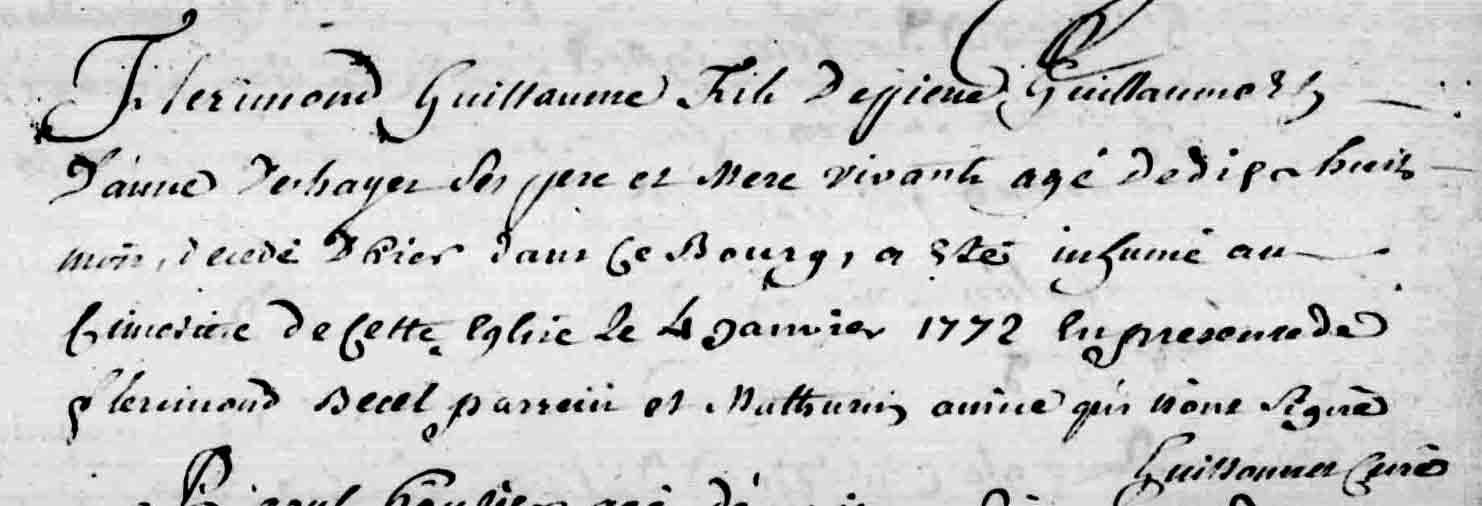 Flerimond Guillaume Fils De pierre Guillaume Et
D'anne Deshayes Ses pere et Mere vivants agé de dix huit
mois, decedé D'hier dans Ce Bourg, a Eté inhumé au
Cimetiere de Cette Eglise Le 4 Janvier 1772 En presence de
flerimond Becel parrein et Mathurin qui n'ont Signé
Guillaumet Curé